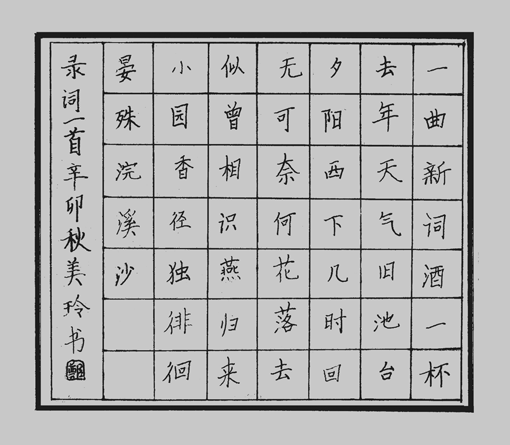 一曲新词酒一杯
去年天气旧池台
夕阳西下几时回
无可奈何花落去
似曾相识燕归来
小园香径独徘徊
晏殊浣溪沙
录词一首辛卯秋美玲书